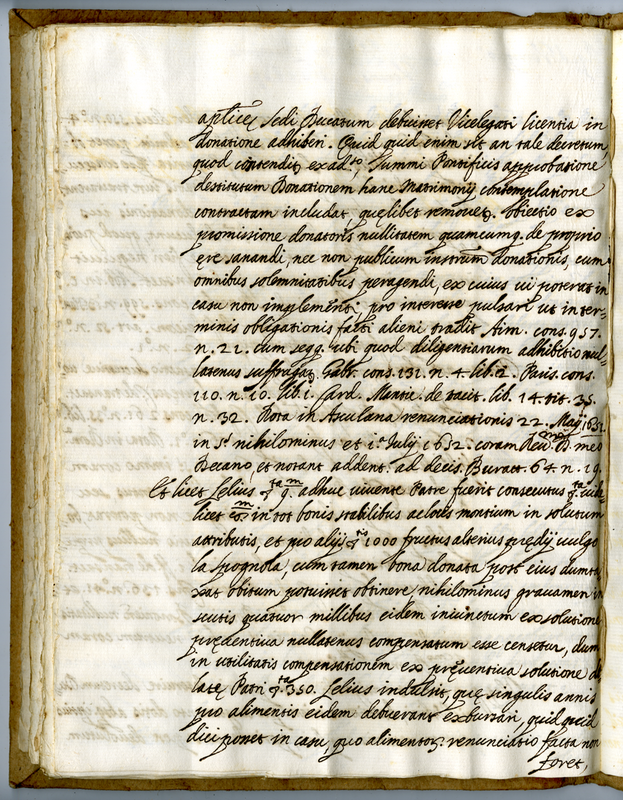 aplicẽ Sedi Ducatum debuisset Vicelegati licentia in
donatione adhiberi. Quid quid enim sit an tale decretum,
quod contendit, ex ad.to, Summi Pontificis approbatione
destitutum Donationem hanc Matrimonij contemplatione
contractam includat, quęlibet remouet. Obiectio ex
promissione donatoris nullitatem quamcumq. de proprio
sanandi, nec non publicum instrum donationis, cum
omnibus solemnitatibus peragendi, ex cuius ui poterat in
casu non implementi, pro interesse pulsari ut in ter-
minis obligationis facti alieni tradit Aim. cons. 957.
n. 21. cum seqq. ubi quod diligentiarum adhibitio nul-
latenus suffragat. Gabr. cons. 131. n. 4 lib. 2. Paris. cons.
110. n. 10. lib. i. Card. Mantic. de tacit. lib. 14. tit. 35.
n. 32. Rota in Asculana renunciationis 22. Maij 1651.
in §. nihilominus et i.a Iulij 1652. coram Reu. P. meo
Decano, et notant addent. ad decis. Buratt. 64. n. 19.
Et licet Lelius adhuc uiuente Patre fuerit consecutus
licet in tot bonis stabilibus ac locis montium in solutum
attributis, et pro alijs 1000 fructus alterius prędij uulgo
la spognola, cum tamen bona donata post eius dumta
xat obitum potuisset obtinere, nihilominus grauamen in
scutis quatuor millibus eidem iniunctum ex solutione
pręcentiua nullatenus compensatum esse censetur, dum
in utilitatis compensationem ex pręuentiua solutione
latę Patri 350. Lelius indulsit, quę singulis annis
pro alimentis eidem debuerant exbursari, quid quid
dici posset in casu, quo alimentor. renunciatio facta non
foret,